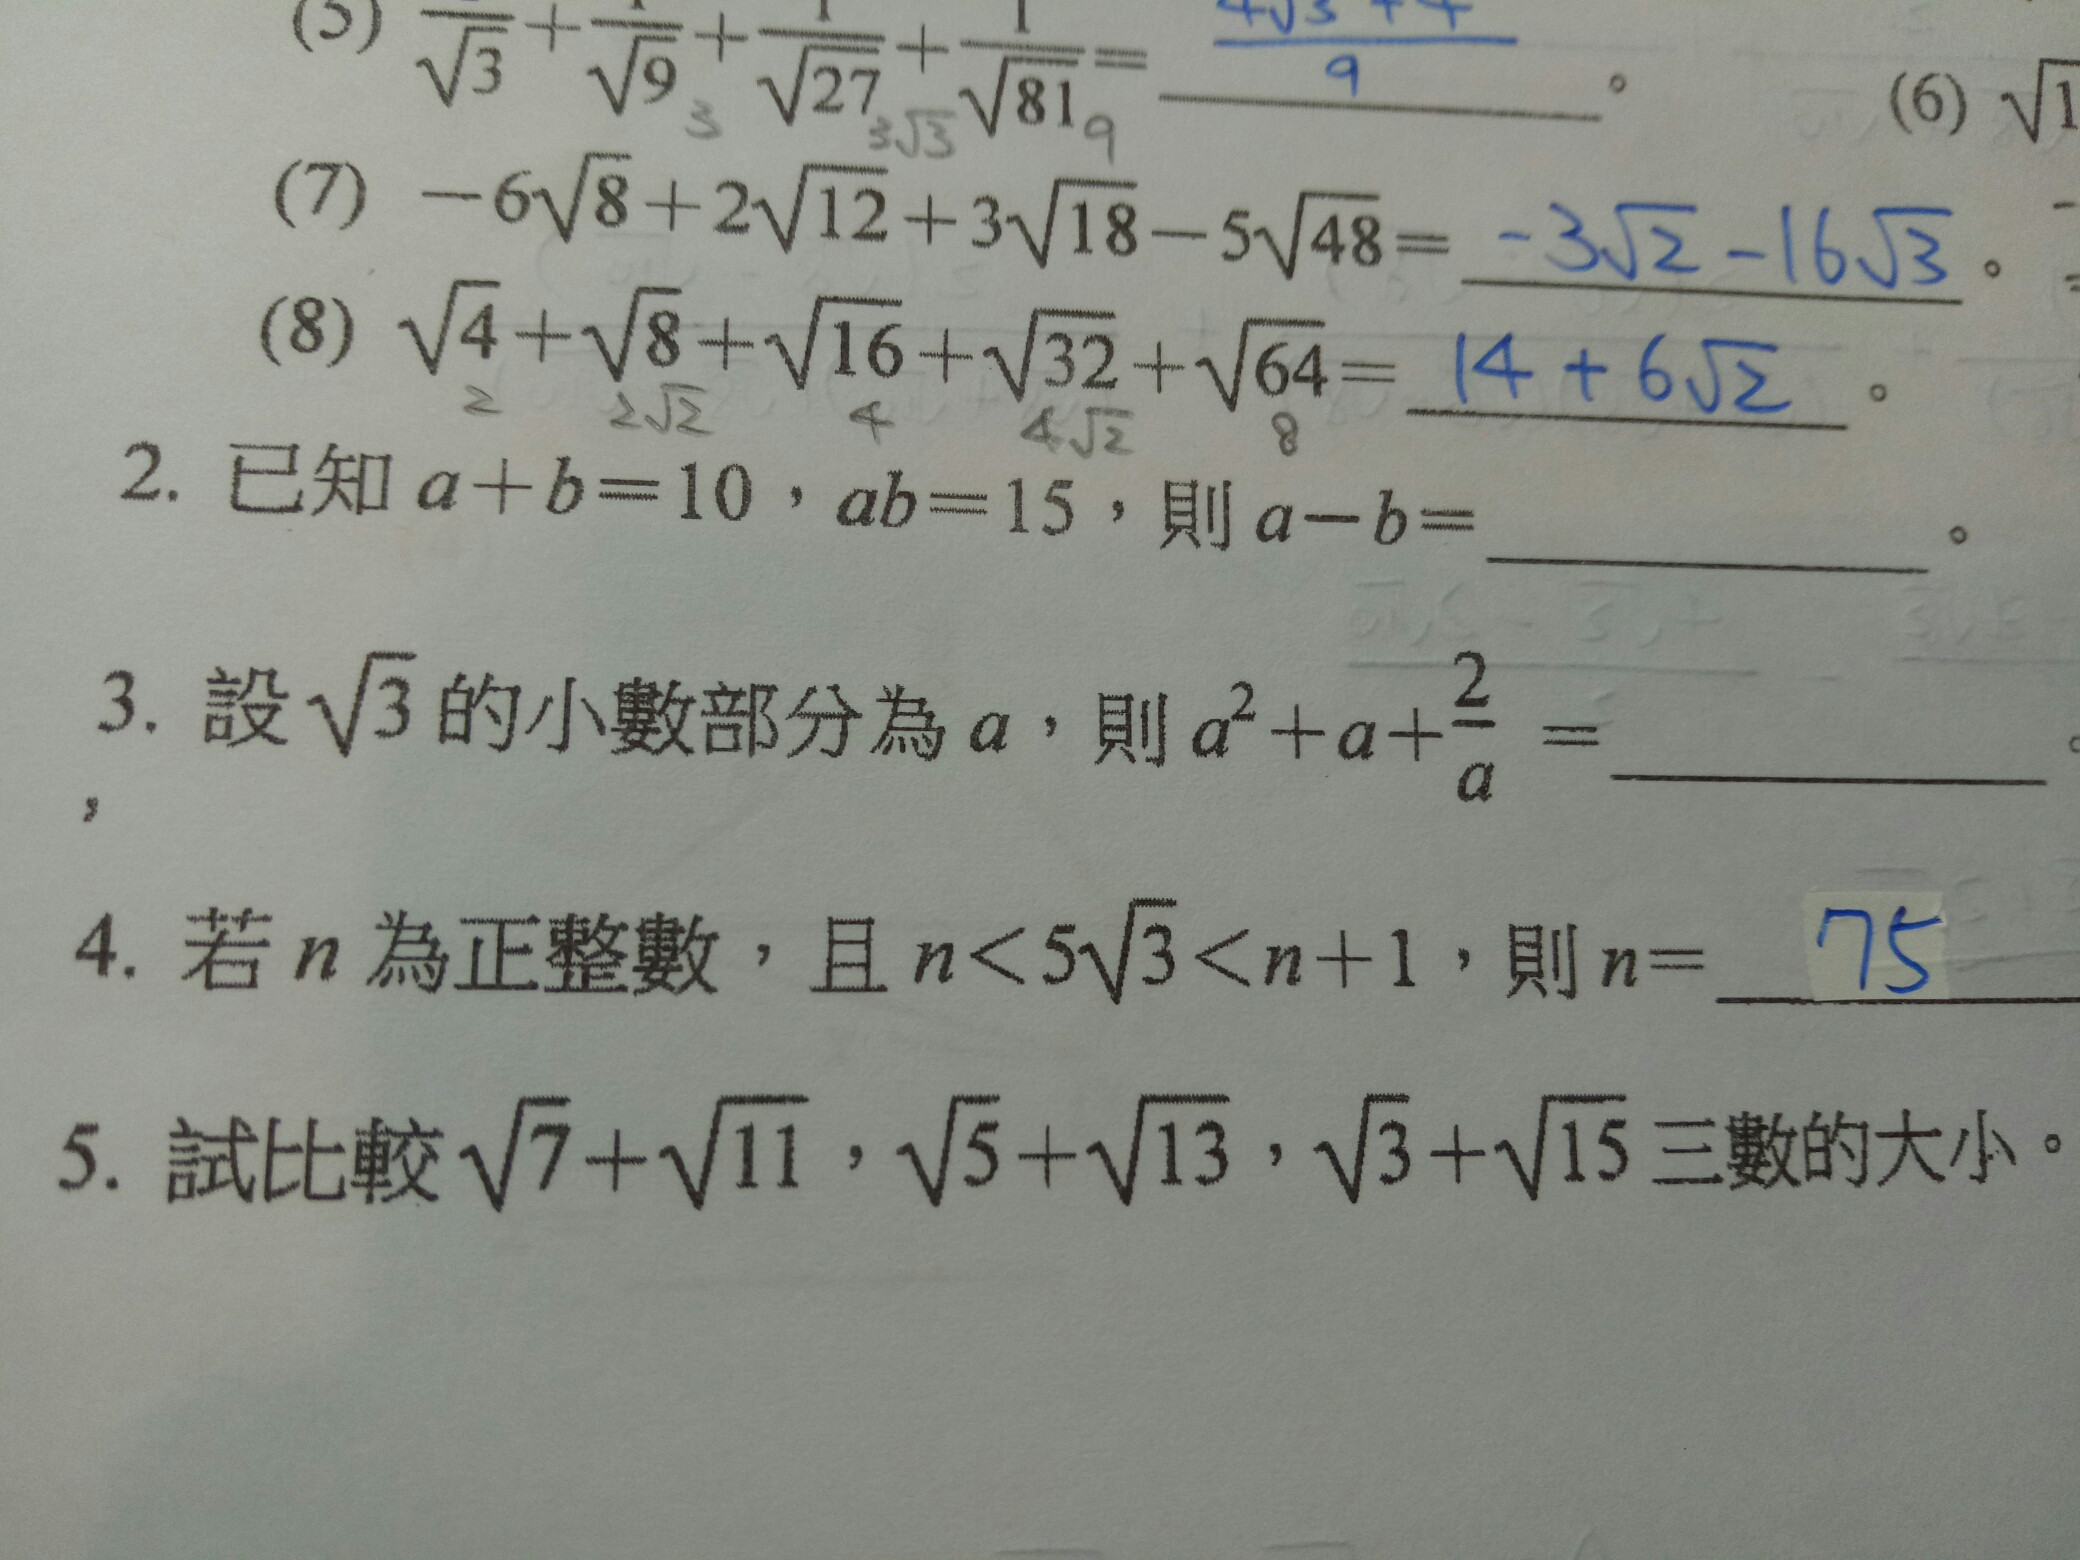 (5) 1/√3 + 1/√9 + 1/√27 + 1/√81 = (4√3+4)/9 。 (6) √1
3 3√3 9
(7) −6√8+2√12+3√18−5√48= -3√2-16√3 。
(8) √4+√8+√16+√32+√64= 14+6√2 。
2 2√2 4 4√2 8
2. 已知 a+b=10，ab=15，則 a−b= 。
3. 設 √3 的小數部分為 a，則 a²+a+2/a = 。
，
4. 若 n 為正整數，且 n<5√3<n+1，則 n= 75
5. 試比較 √7+√11，√5+√13，√3+√15 三數的大小。